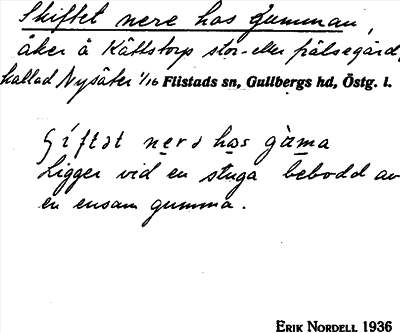 Skiftet nere hos Gumman,
åker å Kättstorp stor- eller frälsegård,
kallad Nysäter 1/16 Flistads sn, Gullbergs hd, Östg. l.
nerə hɑs
Ligger vid en stuga bebodd av
en ensam gumma.
ERIK NORDELL 1936